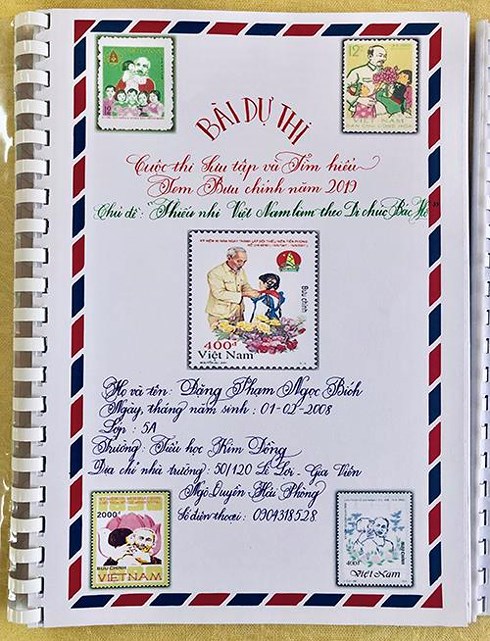 BÀI DỰ THI
Cuộc thi Sưu tập và Tìm hiểu
Tem Bưu chính năm 2019
Chủ đề: "Thiếu nhi Việt Nam làm theo Di chúc Bác Hồ"
12
VIỆT NAM
400đ
Việt Nam
Bưu chính
Họ và tên: Đặng Phạm Ngọc Bích
Ngày, tháng năm sinh: 01-02-2008
Lớp: 5A
Trường: Tiểu học Kim Đồng
Địa chỉ nhà trường: 50/120 Lê Lợi - Gia Viên
Ngô Quyền Hải Phòng
Số điện thoại: 0904318528
2000đ
BƯU CHÍNH
VIỆTNAM
400đ
Việt Nam